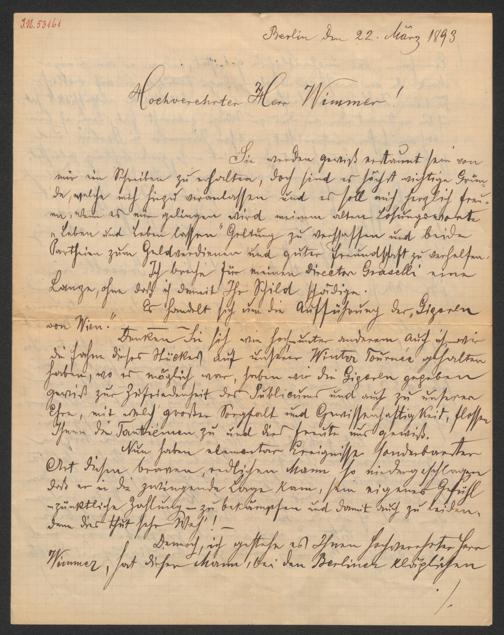 I.N. 53161
Berlin den 22. März 1893
Hochverehrter Herr Wimmer!
Sie werden gewiß erstaunt sein von
mir ein Schreiben zu erhalten, doch sind es höchst wichtige Grün-
de, welche mich hiezu veranlassen und es soll mich herzlich freu-
en, wenn es mir gelingen wird meinem alten Losungsworte
"Leben und Leben lassen" Geltung zu verschaffen und beide
Partheien zum Geldverdienen und guter Freundschaft zu verhelfen.
Ich breche für meinen Director Graselli eine
Lanze, ohne daß ich damit Ihr Schild schädige.
Es handelt sich um die Aufführung der "Gigerln
von Wien."
Denken Sie sich wie hoch unter anderem auch ich wir
die Fahne dieses Stückes auf unserer Winter Tournee gehalten
haben, wo es möglich war, haben wir die Gigerln gegeben
gewiß zur Zufriedenheit des Publicums und auch zu unserer
Ehre, mit welch großer Sorgfalt und Gewissenhaftigkeit, flossen
Ihnen die Tantiemen zu und dies freute uns gewiß.
Nun haben elementare Ereignisse sonderbarster
Art diesen braven, redlichen Mann so niedergeschlagen
daß er in die zwingende Lage kam, sein eigenes Gefühl
-pünktliche Zahlung- zu bekämpfen und damit auch zu leiden,
denn dies thut sehr Weh'! -
Dennoch, ich gestehe es Ihnen hochverehrter Herr
Wimmer, hat dieser Mann, bei den Berliner
./.